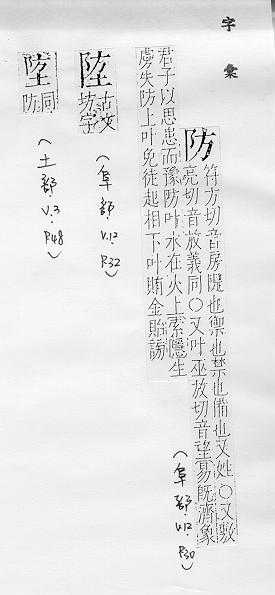 字彙
防
符方切音房隄也禦也禁也備也又姓○又敷
亮切音放義同○又叶巫放切音望易旣濟象
君子以思患而豫防叶水在火上索隱生
虞失防上叶免徒起相下叶賄金貽謗
(阜部 V.12 P.30)
陸
古文
坊字
(阜部 V.12 P.32)
埅
同
防
(土部 V.3 P.48)